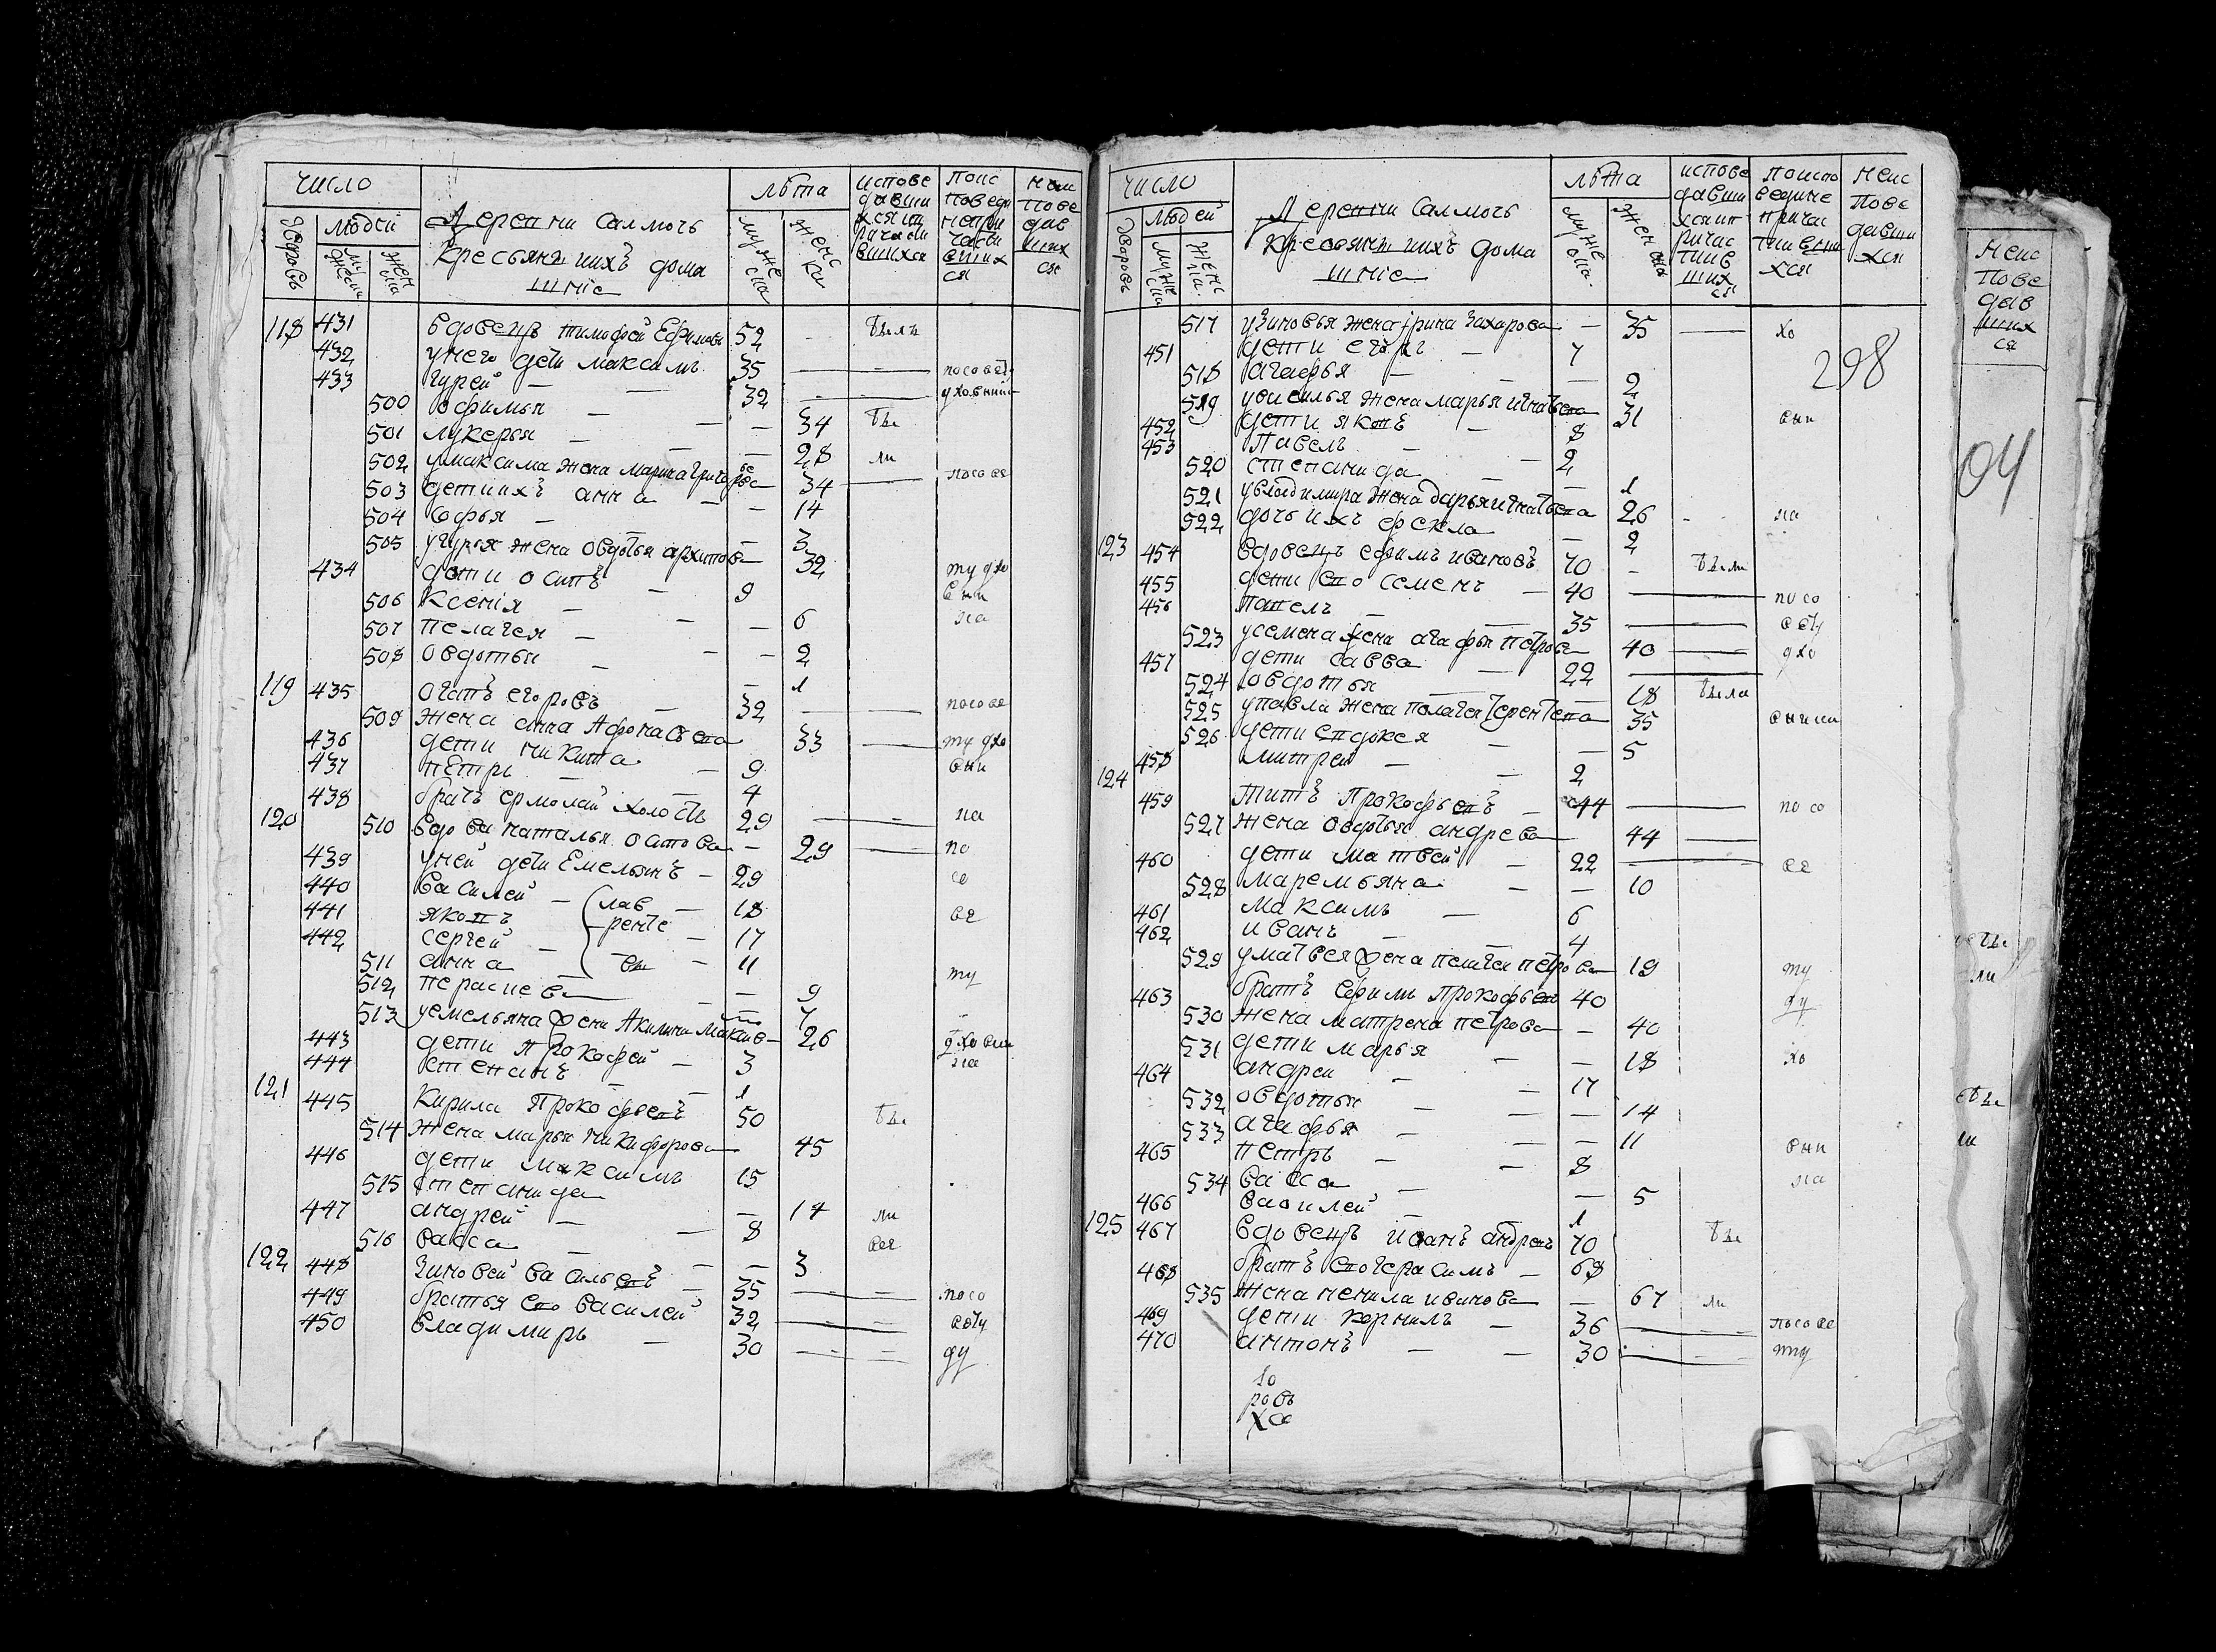 число
людей
дворовъ
мужеска
женска
Деревни салмочъ
Крестьяня ихъ дома
шніе
лѣта
мужеска
женска
исповедавшихся и причастившихся
поисповеди непричастившихся
неисповедавшихся
118 431 вдовецъ тимофей Ефимовъ 52 — были
432 унего дети максимъ 35 — посовету
433 гурей — 32 — духовний
500 офимья — 34 бы
501 лукерья — 28 ли
502 умаксима жена марина григорьева 34 — посове
503 дети ихъ анна — 14
504 софья — 3
505 угурья жена овдотья архипова 32 ту дхо
434 дети осипъ — 9 вни
506 Ксенія — 6 на
507 пелагея — 2
508 овдотья — 1
119 435 егоровъ — 32 — посове
509 жена анна Афонасьева 33 — ту дхо
436 дети никита — 9 вни
437 пётръ — 4
438 братъ ермолай холостъ 29 — на
120 510 вдова наталья — 29 — по
439 уней дети Емельянъ — 29 со
440 василей — лав — 18
441 яковъ — ренте — 17 ве
442 сергей — вы — 11
511 анна — 9 ту
512 — 7
513 уемельяна жена Акилина 26 дховни
443 дети Прокофей — 3 на
444 степанъ — 1
121 445 Кирила Прокофьевъ 50 бы
514 жена марья никифорова 45
446 дети максимъ 15
515 степанида — 14 ли
447 андрей — 8
516 васса — 3
122 448 Зиновей васильевъ — 35 — посо
449 братья ево василей 32 — вету
450 владимиръ — 30 — ду
число
людей
дворовъ
мужеска
женска
Деревни салмочъ
крестьяня ихъ дома
шніе
лѣта
мужеска
женска
исповедавшихся и причастившихся
неисповедавшихся
517 узиновья жена ірина захарова — 35 — хо
451 дети — 7
298
518 агафья — 2
519 увасилья жена марья игнатьева 31 вни
452 дети яковъ — 8
453 Павелъ — 2
520 степанида — 1
521 увладимира жена дарья игнатьева 26 на
522 дочь ихъ фекла — 2
123 454 вдовецъ ефимъ ивановъ 70 — были
455 дети ево семенъ — 40 — посо
456 павелъ — 35 — вету
523 усемена жена агафья петрова 40 — дхо
457 дети савва — 22
524 овдотья — 18 была
525 упавла жена пелагея терентева 35 внии
526 дети евдокея — 5
458 митрей — 2
124 459 титъ Прокофьевъ — 44 — посо
527 жена овдотья андрева 44 —
460 дети матвей — 22 — ве
528 маремьяна — 10
461 максимъ — 6
462 иванъ — 4
529 уматвея жена пелагея петрова 19 ту
463 братъ ефимъ Прокофьевъ 40 ду
530 жена матрена петрова — 40
531 дети марья — 18 хо
464 андрей — 17
532 овдотья — 14
533 агафья — 11
465 петръ — 8 вни
534 васса — 5 на
466 василей — 1
125 467 вдовецъ иванъ андревъ 70 бы
468 братъ ево герасимъ — 68
535 жена ненила иванова — 67 ли
469 дети корнилъ — 36 — посове
470 антонъ — 30 — ту
ровъ
неис
пове
дав
ших
ся
04
бы
ли
бы
ли